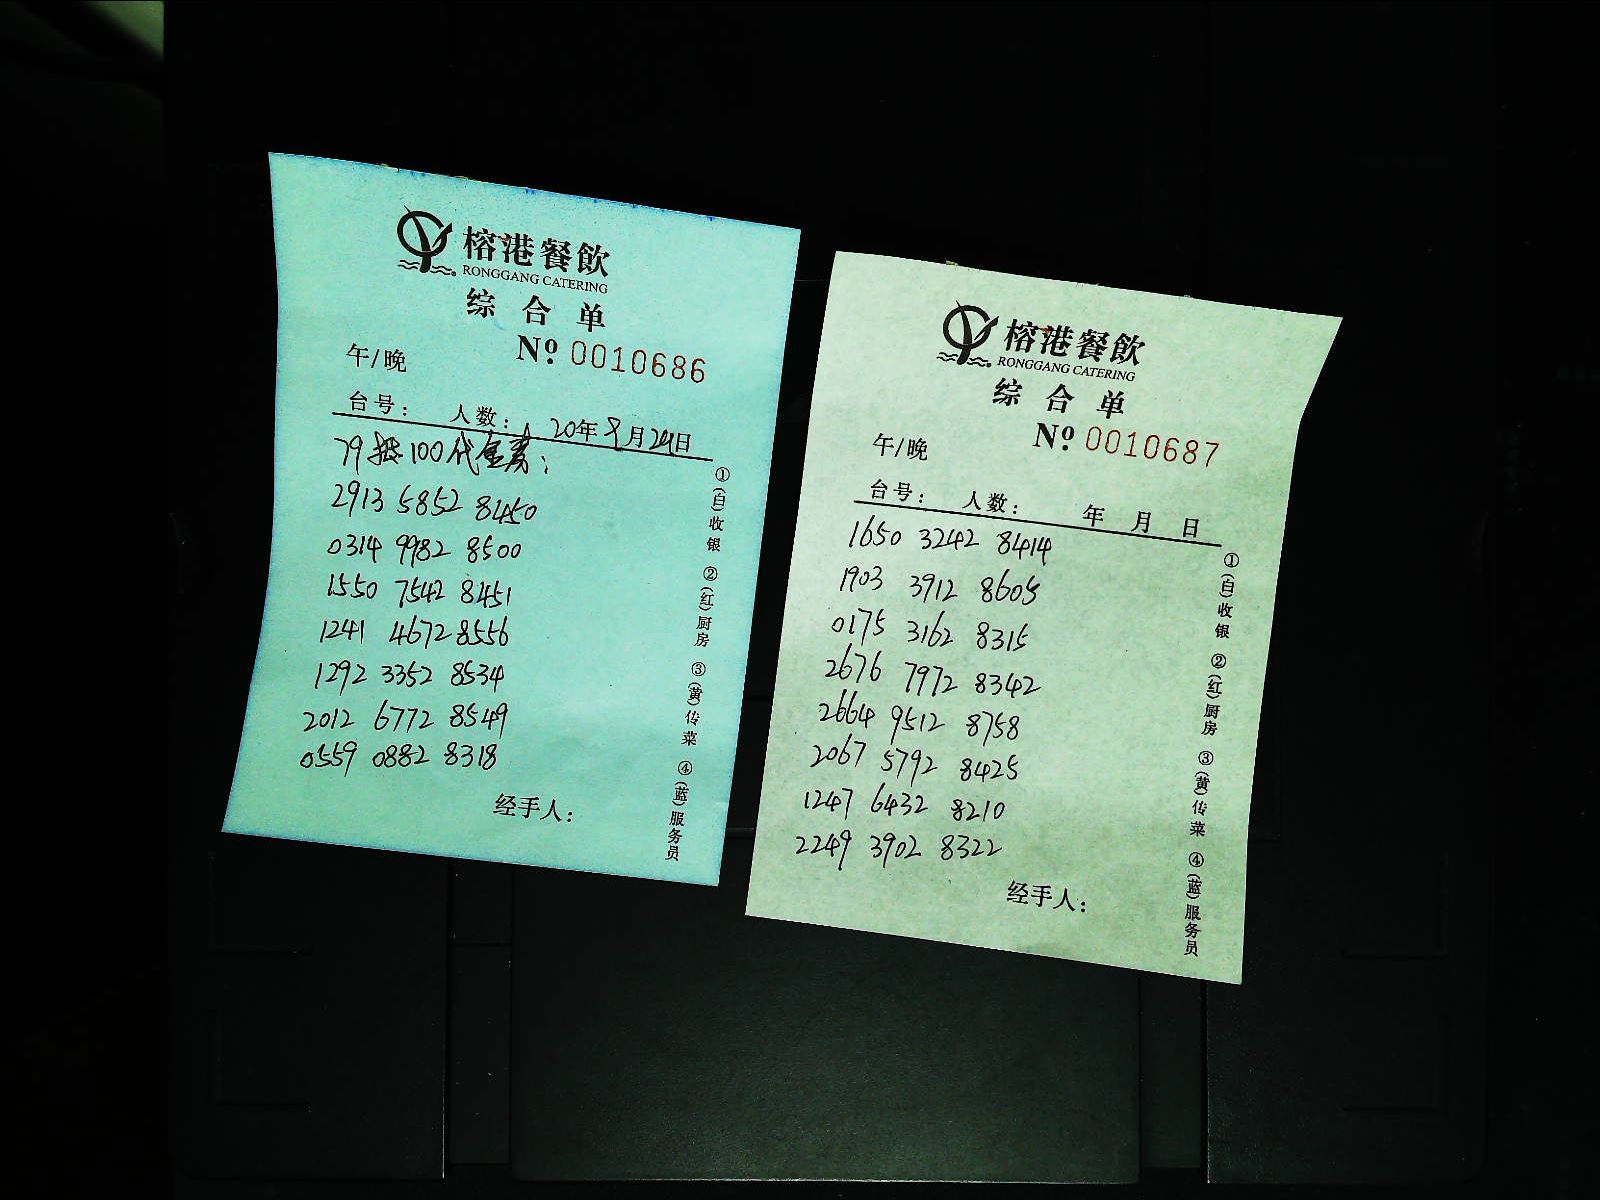 榕港餐飲
RONGGANG CATERING
综合单
№ 0010686
午/晚
台号: 人数: 20年8月24日
79抵100代金券:
2913 5852 8450
0314 9982 8500
1550 7542 8451
1241 4672 8556
1292 3352 8534
2012 6772 8549
0559 0882 8318
经手人:
①(白)收银 ②(红)厨房 ③(黄)传菜 ④(蓝)服务员
榕港餐飲
RONGGANG CATERING
综合单
№ 0010687
午/晚
台号: 人数: 年 月 日
1650 3242 8414
1903 3912 8605
0175 3162 8315
2676 7972 8342
2664 9512 8758
2067 5792 8425
1247 6432 8210
2249 3902 8322
经手人:
①(白)收银 ②(红)厨房 ③(黄)传菜 ④(蓝)服务员